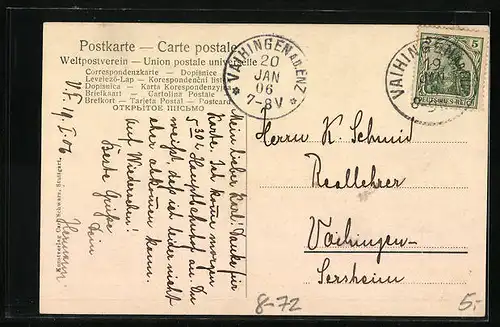 Postkarte – Carte postale
Weltpostverein – Union postale universelle
Correspondenzkarte – Dopisnice
Levelező-Lap – Korespondenční lístek
Dopisnica – Karta Korespondenzyj
Briefkaart – Cartolina Postale
Brefkort – Tarjeta Postal – Postcard
ОТКРЫТОЕ ПИСЬМО
VAIHINGEN A.D. ENZ
20
JAN
06
7-8V
VAIHINGEN
19
JAN
5 5
DEUTSCHES REICH
V.F. 19.I.06
Mein lieber Karl! Danke für
Karte. Ich komme morgen
5 30 i. Hauptbahnhof an. Du
weißt, daß ich leider nicht
eher abkommen kann.
Auf Wiedersehen!
Beste Grüße
Dein
Hermann
Herrn K. Schmid
Reallehrer
Vaihingen-
Sersheim
8-72
5.-